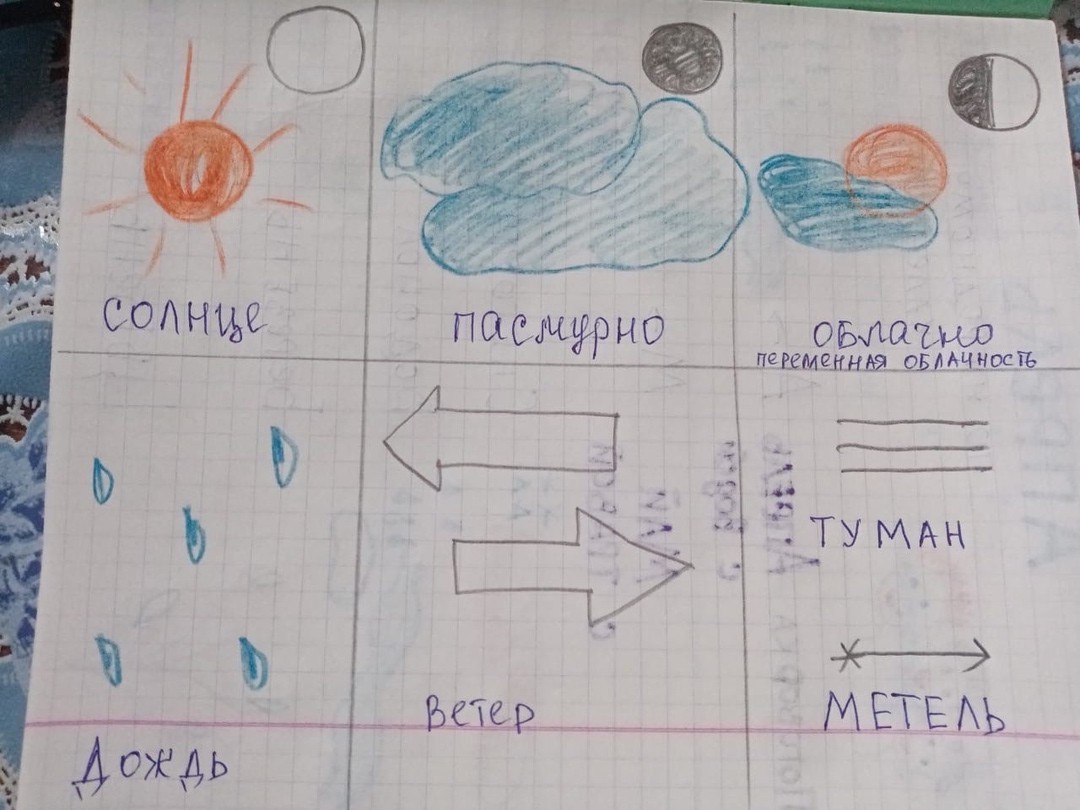 СОЛНЦЕ
ПАСМУРНО
ОБЛАЧНО
ПЕРЕМЕННАЯ ОБЛАЧНОСТЬ
ДОЖДЬ
ВЕТЕР
ТУМАН
МЕТЕЛЬ